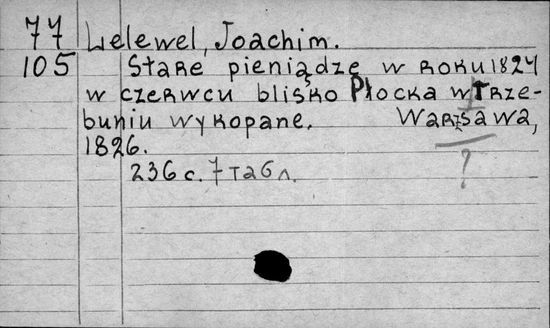 77 Lelewel, Joachim.
105 Stare pieniądze w roku 1824
w czerwcu blisko Płocka w Trze-
buniu wykopane. Warszawa,
1826.
236 с. 7 табл.
?